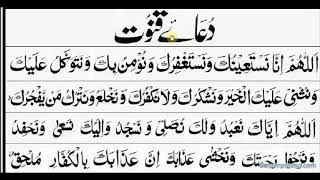 دُعَائے قُنُوت
اَللّٰهُمَّ اِنَّا نَسْتَعِيْنُكَ وَنَسْتَغْفِرُكَ وَنُؤْمِنُ بِكَ وَنَتَوَكَّلُ عَلَيْكَ
وَنُثْنِىْ عَلَيْكَ الْخَيْرَ وَنَشْكُرُكَ وَلَا نَكْفُرُكَ وَنَخْلَعُ وَنَتْرُكُ مَنْ يَّفْجُرُكَ
اَللّٰهُمَّ اِيَّاكَ نَعْبُدُ وَلَكَ نُصَلِّىْ وَنَسْجُدُ وَاِلَيْكَ نَسْعٰى وَنَحْفِدُ
وَنَرْجُوْا رَحْمَتَكَ وَنَخْشٰى عَذَابَكَ اِنَّ عَذَابَكَ بِالْكُفَّارِ مُلْحِقٌ